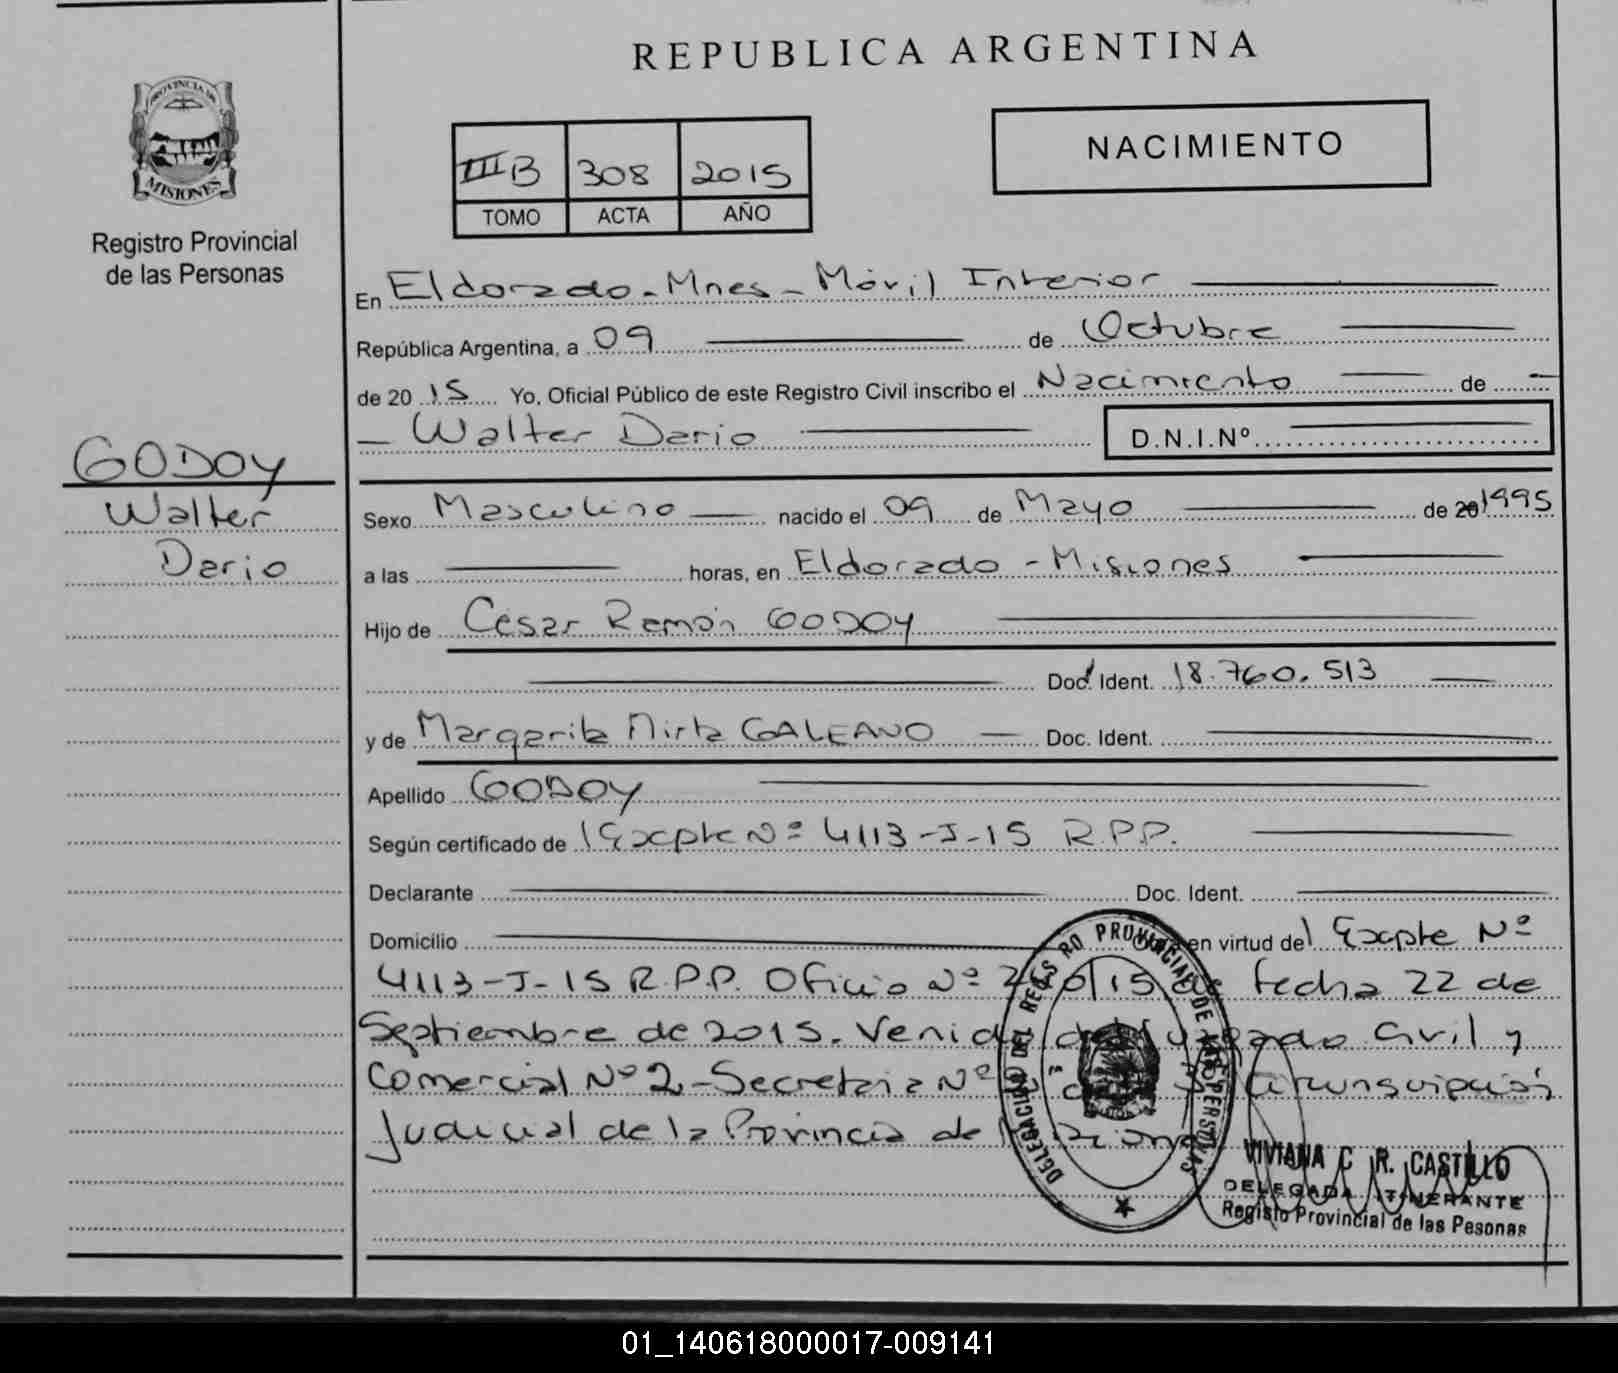 REPUBLICA ARGENTINA
PROVINCIA DE
MISIONES
Registro Provincial
de las Personas
NACIMIENTO
III B 308 2015
TOMO ACTA AÑO
En Eldorado - Mnes - Móvil Interior
República Argentina, a 09 de Octubre
de 2015 Yo, Oficial Público de este Registro Civil inscribo el Nacimiento de
Walter Dario D.N.I.Nº
GODOY
Walter
Dario
Sexo Masculino nacido el 09 de Mayo de 20 1995
a las horas, en Eldorado - Misiones
Hijo de César Ramón GODOY
Doc. Ident. 18.760.513
y de Margarita Mirta GALEANO Doc. Ident.
Apellido GODOY
Según certificado de Expte Nº 4113-J-15 R.P.P.
Declarante Doc. Ident.
Domicilio en virtud del Expte Nº
4113-J-15 R.P.P. Oficio Nº fecha 22 de
Septiembre de 2015. Venido del Juzgado Civil y
Comercial Nº 2 - Secretaria Nº Circunscripción
Judicial de la Provincia de Misiones
DELEGACION DEL REGISTRO PROVINCIAL DE LAS PERSONAS
VIVIANA C R. CASTILLO
DELEGADA ITINERANTE
Registo Provincial de las Pesonas
01_140618000017-009141